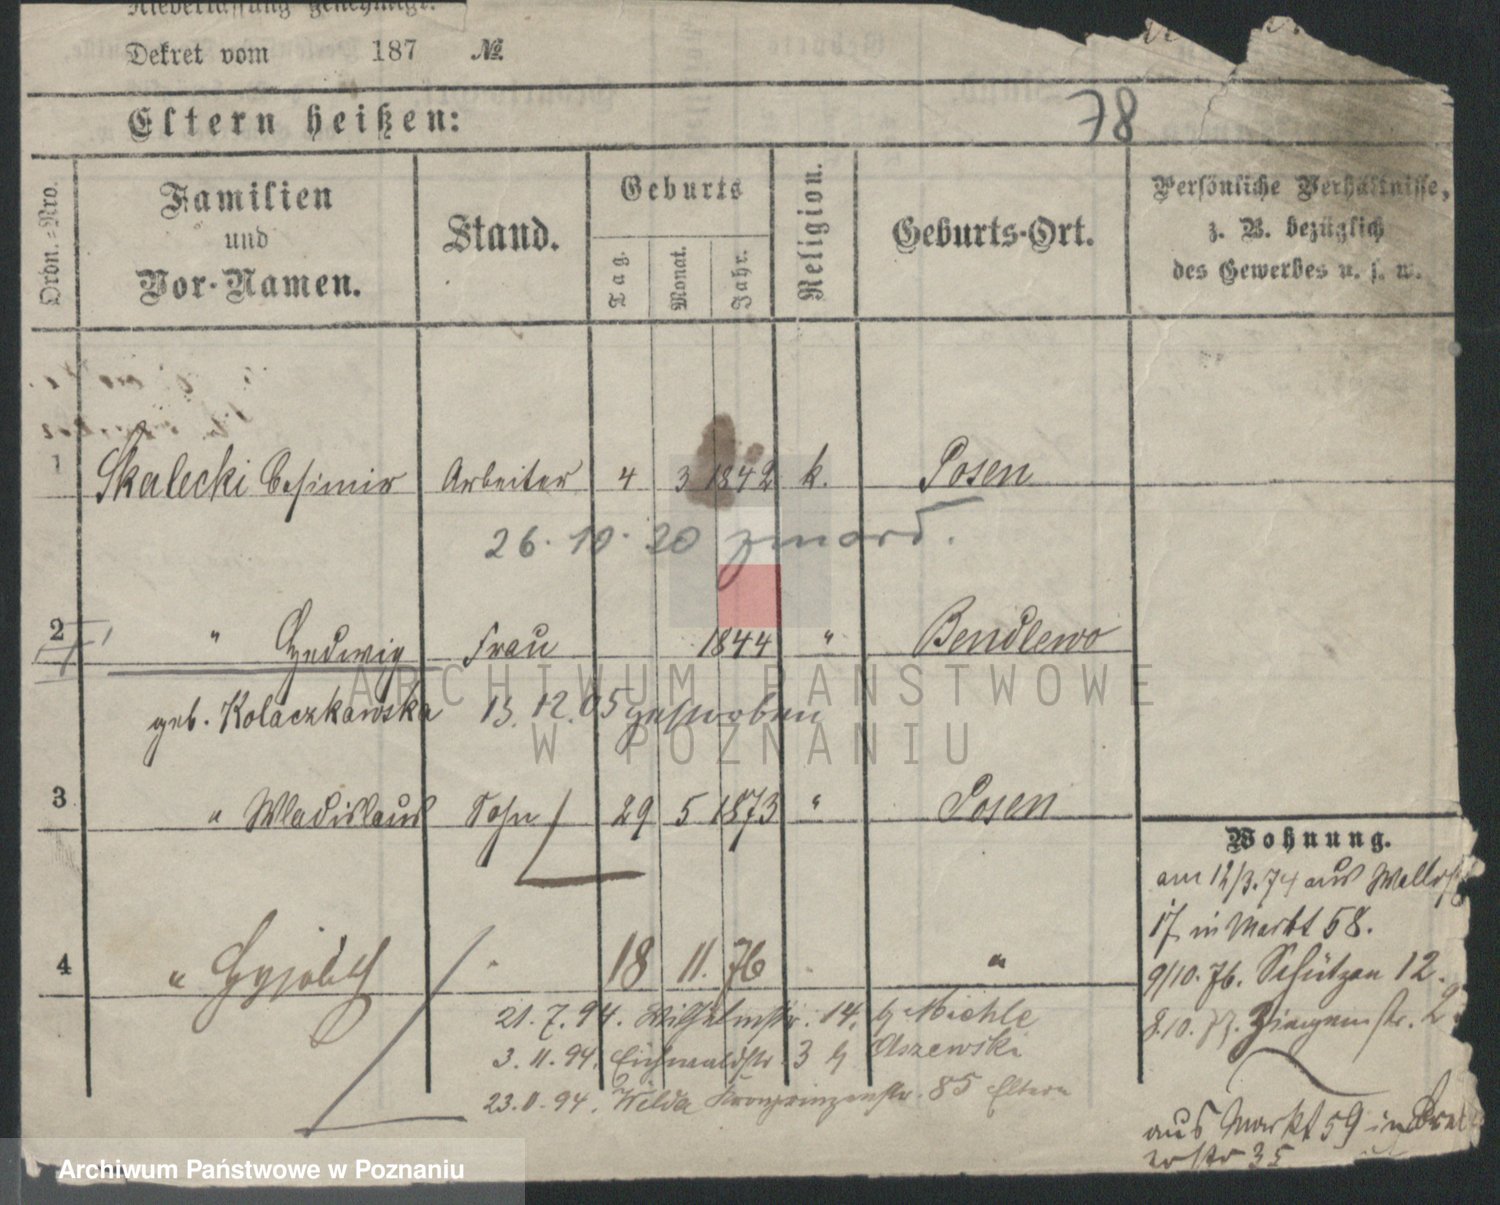 Niederlassung genehmigt.
Dekret vom 187 №
Eltern heißen:
78
Ordn.-Nro.
Familien
und
Vor-Namen.
Stand.
Geburts
Tag.
Monat.
Jahr.
Religion.
Geburts-Ort.
Persönliche Verhältnisse,
z. B. bezüglich
des Gewerbes u. s. w.
1 Skalecki Casimir Arbeiter 4 3 1842 k. Posen
26.10.20 zmarł.
2 " Hedwig Frau 1844 " Bendlewo
geb. Kolaczkowska 13.12.05 gestorben
3 " Wladislaus Sohn 29 5 1873 " Posen
4 " 18 11. 76 "
21.7.94. Wilhelmstr. 14. b Michle
3.11.94. Eichwaldstr. 3 b Olszewski
23.11.94. Wilda Kronprinzenstr. 85 Eltern
Wohnung.
am 12/3.74 aus
17 in Markt 58.
9/10.76. Schützen 12.
8.10.77. Ziegenstr. 2
aus Markt 59 in
str 35
ARCHIWUM PAŃSTWOWE
W POZNANIU
Archiwum Państwowe w Poznaniu